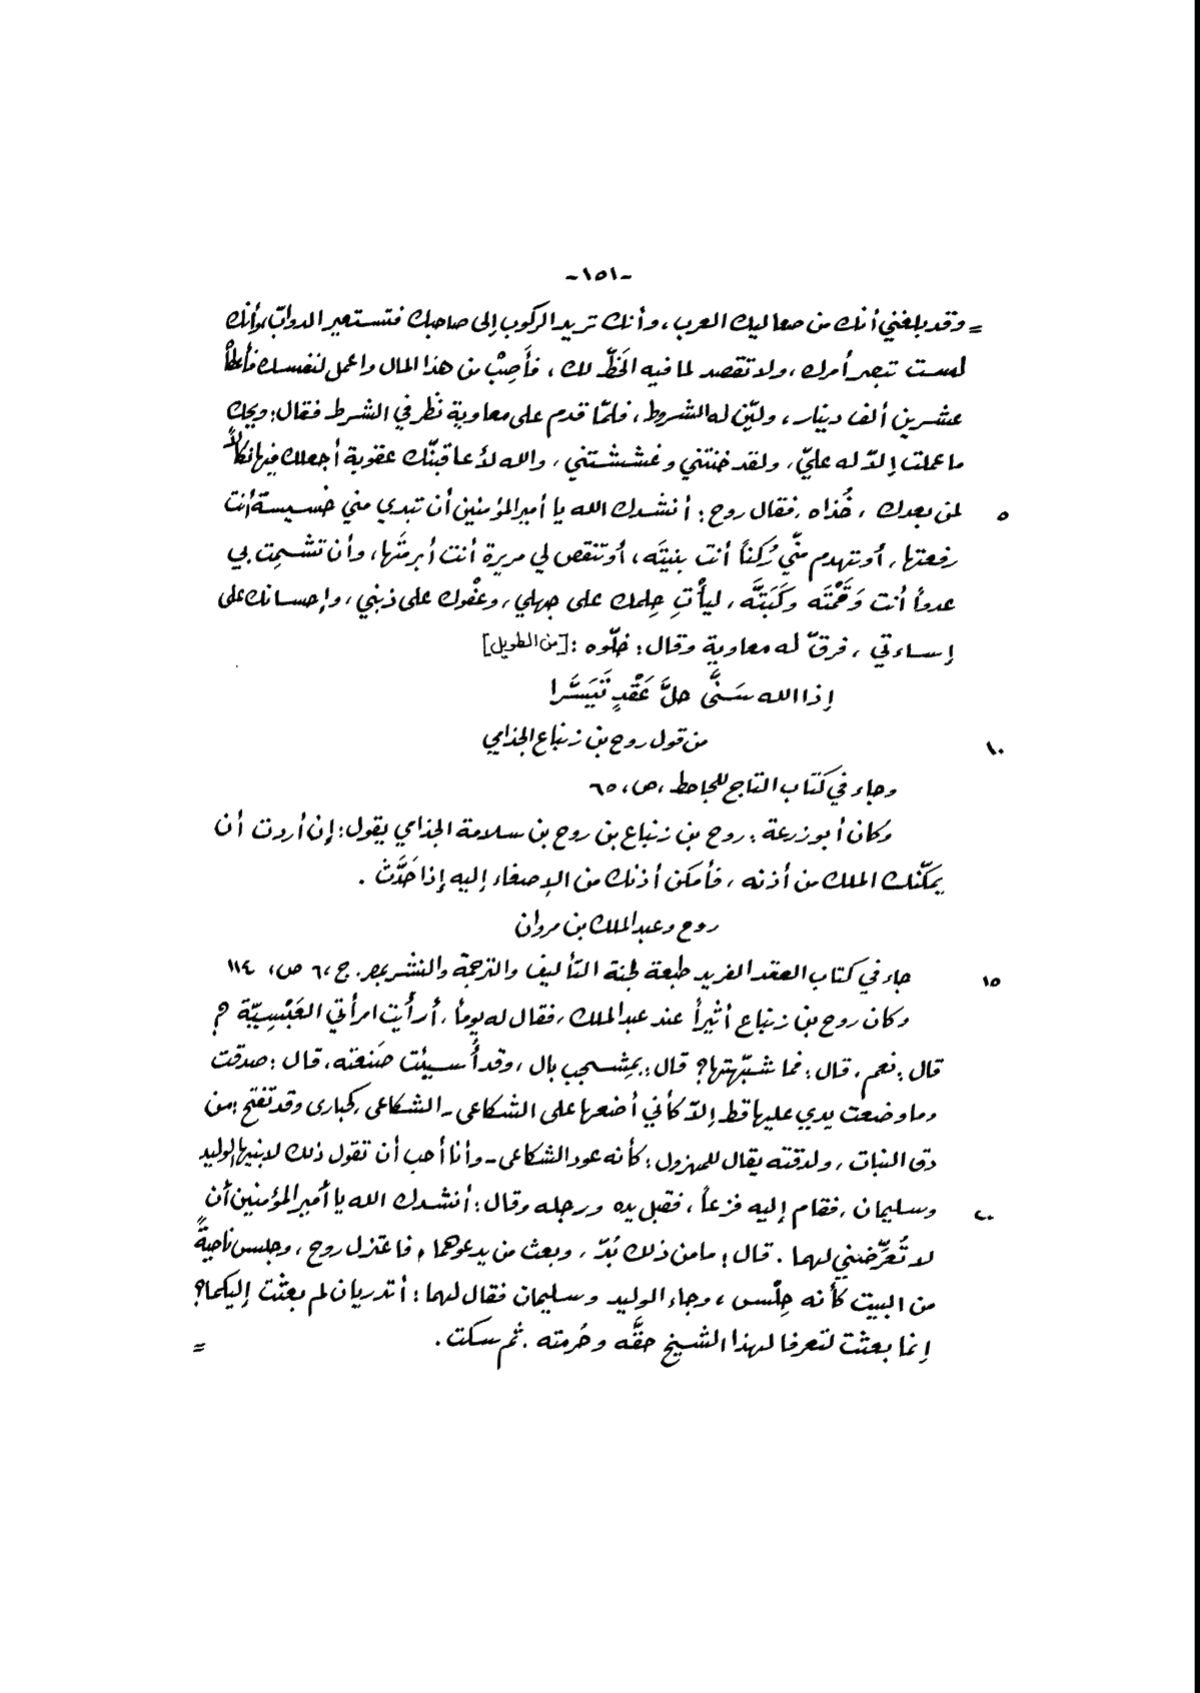 -١٥١-
= وقد بلغني أنك من صعاليك العرب، وأنك تريد الركوب إلى صاحبك فتستعير الدوابّ، وأنك
لست تبصر أمرك، ولا تقصد لما فيه الحَظّ لك، فأَصِبْ من هذا المال واعمل لنفسك فأعطاه
عشرين ألف دينار، وليّن له الشروط، فلمّا قدم على معاوية نظر في الشرط فقال: ويحك
ما عملت إلّا له عليّ، ولقد خنتني وغششتني، والله لأعاقبنّك عقوبة أجعلك فيها نكالاً
٥ لمن بعدك، خُذاه، فقال روح: أنشدك الله يا أمير المؤمنين أن تبدي مني خسيسة أنت
رفعتها، أو تهدم منّي رُكناً أنت بنيتَه، أو تنقض لي مريرة أنت أبرمتَها، وأن تشمِت بي
عدواً أنت وَقَمْتَه وكَبَتَّه، ليأْتِ حِلمك على جهلي، وعفْوك على ذنبي، وإحسانك على
إساءتي، فرقّ له معاوية وقال: خلّوه: [من الطويل]
إذا الله سَنَّى حلَّ عَقْدٍ تَيَسَّرا
١٠ من قول روح بن زنباع الجذامي
وجاء في كتاب التاج للجاحظ، ص، ٦٥
وكان أبو زرعة: روح بن زنباع بن روح بن سلامة الجذامي يقول: إن أردت أن
يمكّنك الملك من أذنه، فأمكن أذنك من الإصغاء إليه إذا حَدَّث.
روح وعبد الملك بن مروان
١٥ جاء في كتاب العقد الفريد طبعة لجنة التأليف والترجمة والنشر بمصر. ج، ٦ ص، ١١٤
وكان روح بن زنباع أثيراً عند عبد الملك، فقال له يوماً، أرأيت امرأتي العَبْسِيّة؟
قال: نعم، قال: فما شبّهتها؟ قال: بمِشجب بال، وقد أُسيئت صَنعته، قال: صدقت
وما وضعت يدي عليها قط إلّا كأني أضعها على الشكاعى - الشكاعى كحبارى وقد تفتح: من
دق النبات، ولدقته يقال للمهزول: كأنه عود الشكاعى - وأنا أحب أن تقول ذلك لابنيها الوليد
٢٠ وسليمان، فقام إليه فزعاً، فقبل يده ورجله وقال: أنشدك الله يا أمير المؤمنين أن
لا تُعرِّضني لهما. قال: ما من ذلك بُدّ، وبعث من يدعوهما، فاعتزل روح، وجلس ناحيةً
من البيت كأنه حِلْس، وجاء الوليد وسليمان فقال لهما: أتدريان لم بعثت إليكما؟
إنما بعثت لتعرفا لهذا الشيخ حقَّه وحُرمته. ثم سكت. =